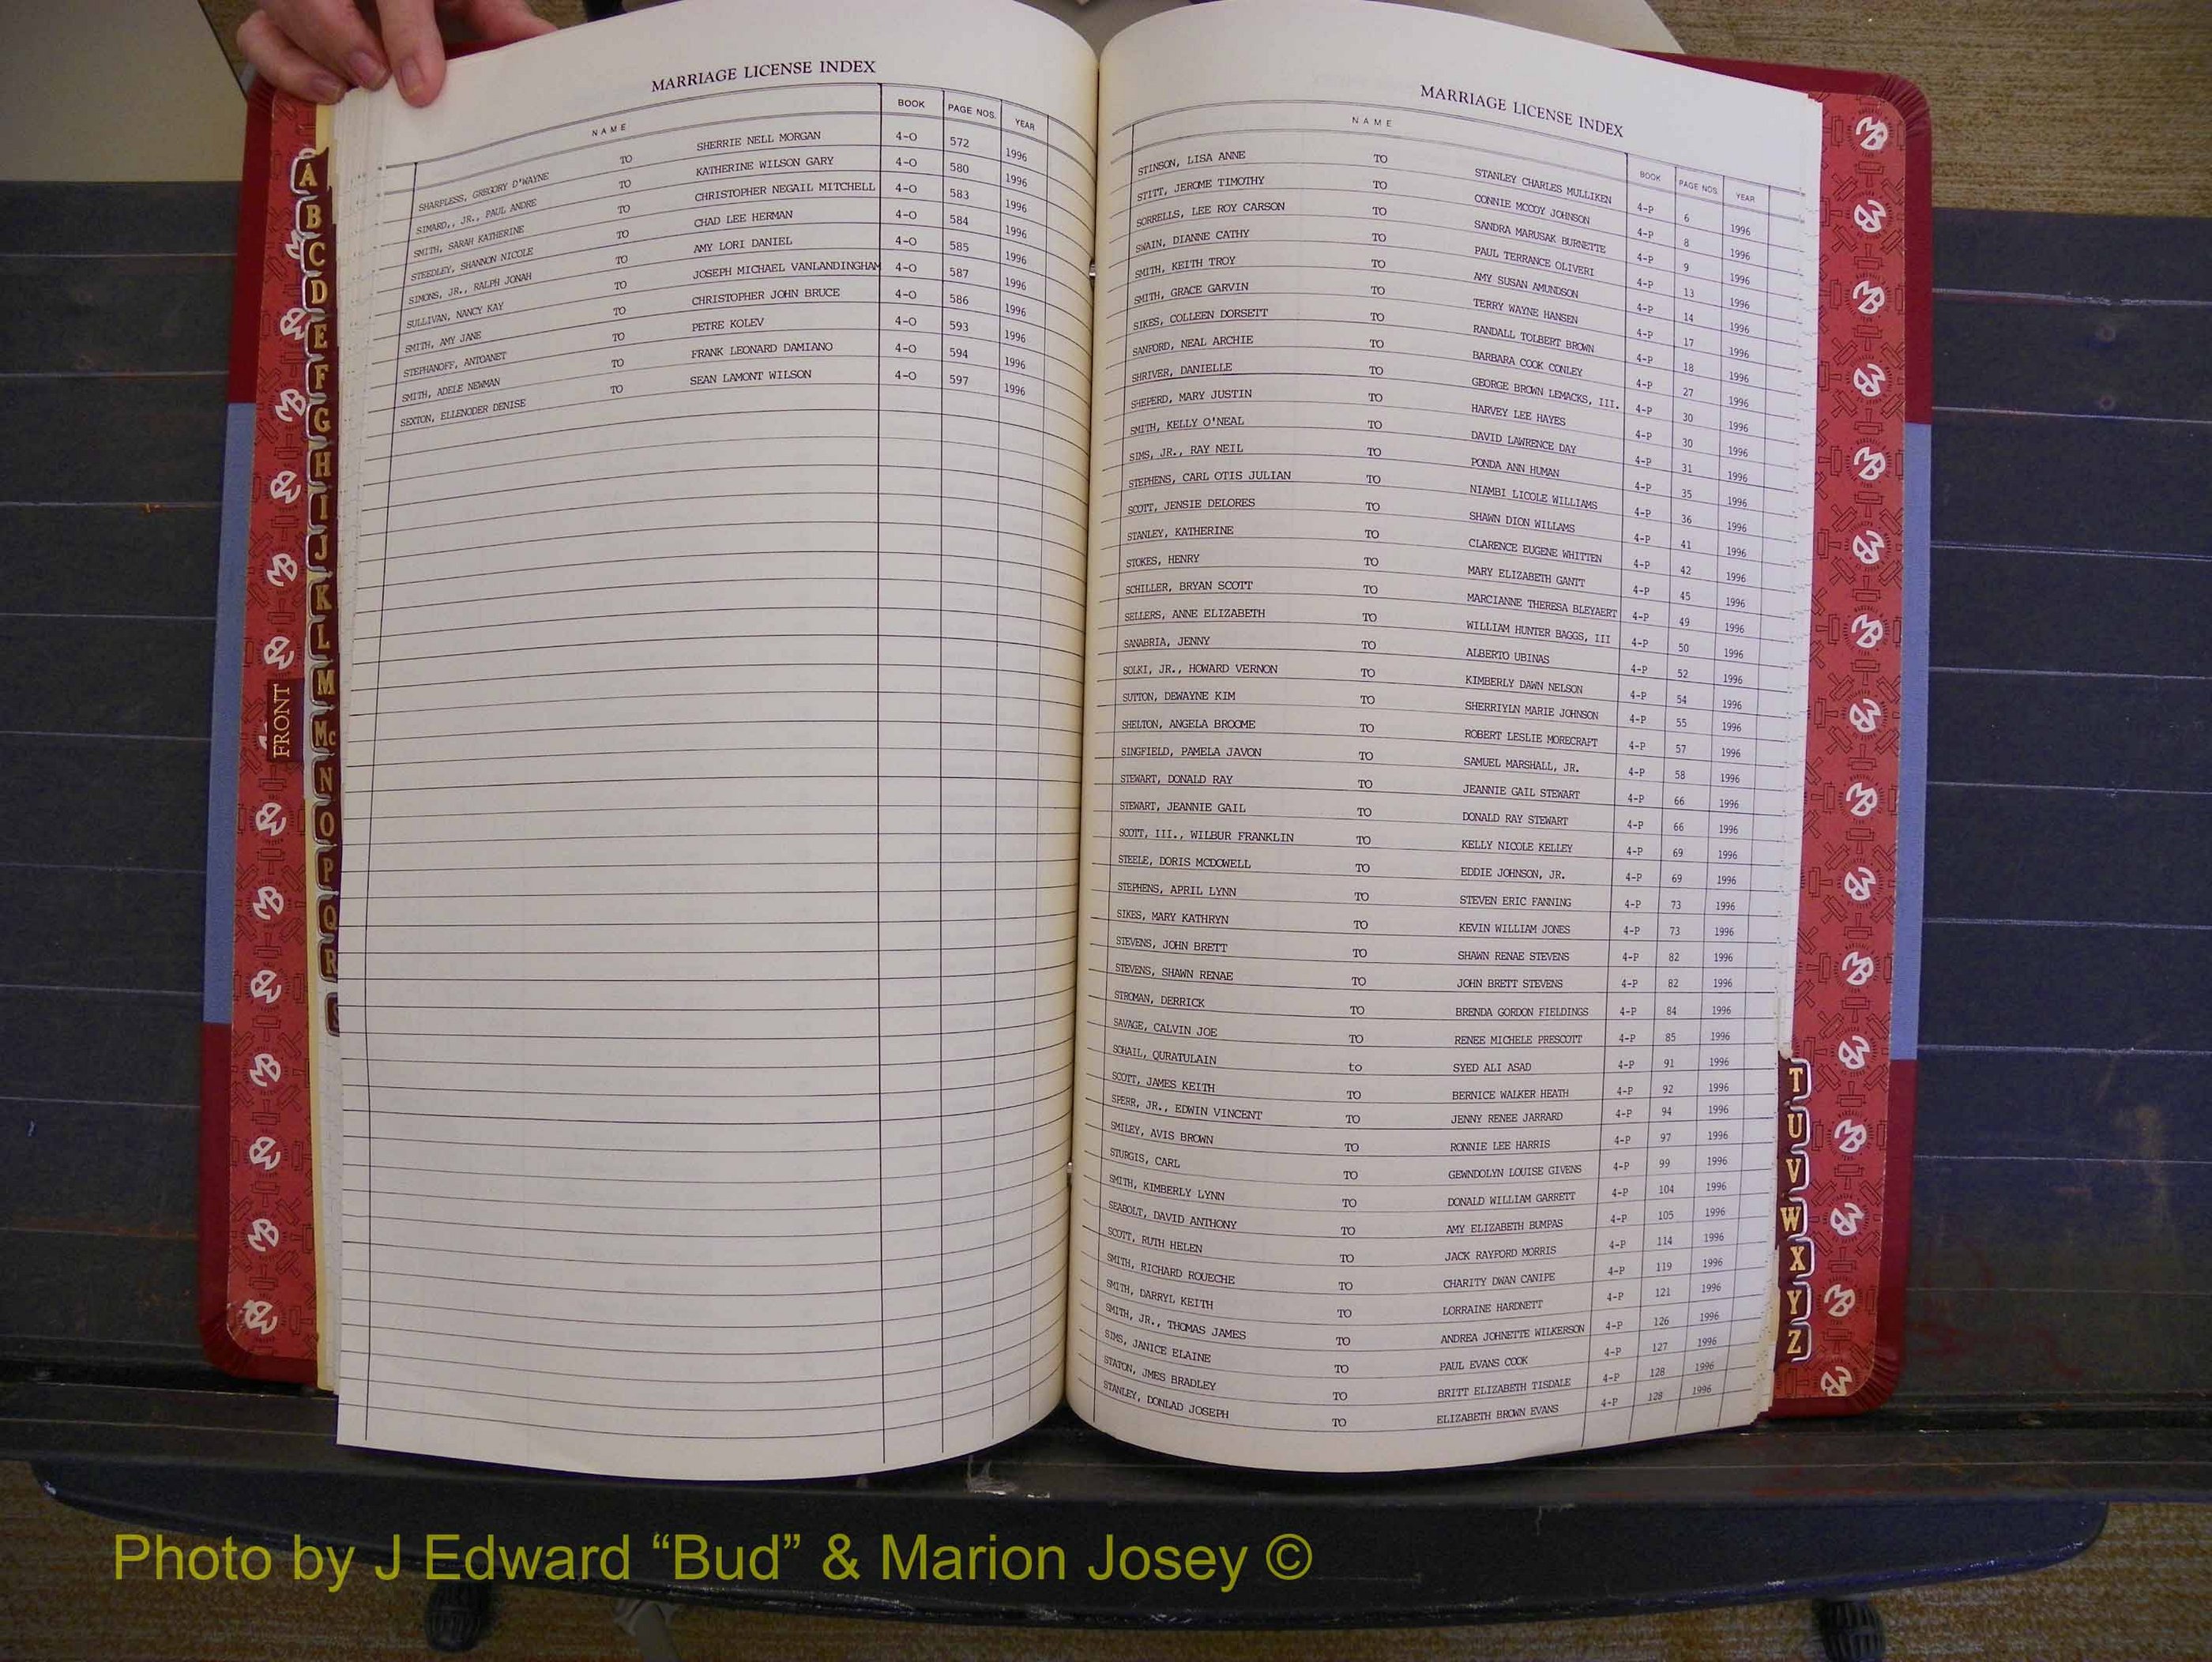 MARRIAGE LICENSE INDEX
NAME BOOK PAGE NOS. YEAR
SHARPLESS, GREGORY D'WAYNE TO SHERRIE NELL MORGAN 4-O 572 1996
SIMARD,, JR., PAUL ANDRE TO KATHERINE WILSON GARY 4-O 580 1996
SMITH, SARAH KATHERINE TO CHRISTOPHER NEGAIL MITCHELL 4-O 583 1996
STEEDLEY, SHANNON NICOLE TO CHAD LEE HERMAN 4-O 584 1996
SIMONS, JR., RALPH JONAH TO AMY LORI DANIEL 4-O 585 1996
SULLIVAN, NANCY KAY TO JOSEPH MICHAEL VANLANDINGHAM 4-O 587 1996
SMITH, AMY JANE TO CHRISTOPHER JOHN BRUCE 4-O 586 1996
STEPHANOFF, ANTOANET TO PETRE KOLEV 4-O 593 1996
SMITH, ADELE NEWMAN TO FRANK LEONARD DAMIANO 4-O 594 1996
SEXTON, ELLENODER DENISE TO SEAN LAMONT WILSON 4-O 597 1996
A
B
C
D
E
F
G
H
I
J
K
L
M
Mc
N
O
P
Q
R
FRONT
MARRIAGE LICENSE INDEX
NAME BOOK PAGE NOS. YEAR
STINSON, LISA ANNE TO STANLEY CHARLES MULLIKEN 4-P 6 1996
STITT, JEROME TIMOTHY TO CONNIE MCCOY JOHNSON 4-P 8 1996
SORRELLS, LEE ROY CARSON TO SANDRA MARUSAK BURNETTE 4-P 9 1996
SWAIN, DIANNE CATHY TO PAUL TERRANCE OLIVERI 4-P 13 1996
SMITH, KEITH TROY TO AMY SUSAN AMUNDSON 4-P 14 1996
SMITH, GRACE GARVIN TO TERRY WAYNE HANSEN 4-P 17 1996
SIKES, COLLEEN DORSETT TO RANDALL TOLBERT BROWN 4-P 18 1996
SANFORD, NEAL ARCHIE TO BARBARA COOK CONLEY 4-P 27 1996
SHRIVER, DANIELLE TO GEORGE BROWN LEMACKS, III. 4-P 30 1996
SHEPERD, MARY JUSTIN TO HARVEY LEE HAYES 4-P 30 1996
SMITH, KELLY O'NEAL TO DAVID LAWRENCE DAY 4-P 31 1996
SIMS, JR., RAY NEIL TO PONDA ANN HUMAN 4-P 35 1996
STEPHENS, CARL OTIS JULIAN TO NIAMBI LICOLE WILLIAMS 4-P 36 1996
SCOTT, JENSIE DELORES TO SHAWN DION WILLAMS 4-P 41 1996
STANLEY, KATHERINE TO CLARENCE EUGENE WHITTEN 4-P 42 1996
STOKES, HENRY TO MARY ELIZABETH GANTT 4-P 45 1996
SCHILLER, BRYAN SCOTT TO MARCIANNE THERESA BLEYAERT 4-P 49 1996
SELLERS, ANNE ELIZABETH TO WILLIAM HUNTER BAGGS, III 4-P 50 1996
SANABRIA, JENNY TO ALBERTO UBINAS 4-P 52 1996
SOLKI, JR., HOWARD VERNON TO KIMBERLY DAWN NELSON 4-P 54 1996
SUTTON, DEWAYNE KIM TO SHERRIYLN MARIE JOHNSON 4-P 55 1996
SHELTON, ANGELA BROOME TO ROBERT LESLIE MORECRAFT 4-P 57 1996
SINGFIELD, PAMELA JAVON TO SAMUEL MARSHALL, JR. 4-P 58 1996
STEWART, DONALD RAY TO JEANNIE GAIL STEWART 4-P 66 1996
STEWART, JEANNIE GAIL TO DONALD RAY STEWART 4-P 66 1996
SCOTT, III., WILBUR FRANKLIN TO KELLY NICOLE KELLEY 4-P 69 1996
STEELE, DORIS MCDOWELL TO EDDIE JOHNSON, JR. 4-P 69 1996
STEPHENS, APRIL LYNN TO STEVEN ERIC FANNING 4-P 73 1996
SIKES, MARY KATHRYN TO KEVIN WILLIAM JONES 4-P 73 1996
STEVENS, JOHN BRETT TO SHAWN RENAE STEVENS 4-P 82 1996
STEVENS, SHAWN RENAE TO JOHN BRETT STEVENS 4-P 82 1996
STROMAN, DERRICK TO BRENDA GORDON FIELDINGS 4-P 84 1996
SAVAGE, CALVIN JOE TO RENEE MICHELE PRESCOTT 4-P 85 1996
SOHAIL, QURATULAIN to SYED ALI ASAD 4-P 91 1996
SCOTT, JAMES KEITH TO BERNICE WALKER HEATH 4-P 92 1996
SPERR, JR., EDWIN VINCENT TO JENNY RENEE JARRARD 4-P 94 1996
SMILEY, AVIS BROWN TO RONNIE LEE HARRIS 4-P 97 1996
STURGIS, CARL TO GEWNDOLYN LOUISE GIVENS 4-P 99 1996
SMITH, KIMBERLY LYNN TO DONALD WILLIAM GARRETT 4-P 104 1996
SEABOLT, DAVID ANTHONY TO AMY ELIZABETH BUMPAS 4-P 105 1996
SCOTT, RUTH HELEN TO JACK RAYFORD MORRIS 4-P 114 1996
SMITH, RICHARD ROUECHE TO CHARITY DWAN CANIPE 4-P 119 1996
SMITH, DARRYL KEITH TO LORRAINE HARDNETT 4-P 121 1996
SMITH, JR., THOMAS JAMES TO ANDREA JOHNETTE WILKERSON 4-P 126 1996
SIMS, JANICE ELAINE TO PAUL EVANS COOK 4-P 127 1996
STATON, JMES BRADLEY TO BRITT ELIZABETH TISDALE 4-P 128 1996
STANLEY, DONLAD JOSEPH TO ELIZABETH BROWN EVANS 4-P 128 1996
T
U
V
W
X
Y
Z
Photo by J Edward “Bud” & Marion Josey ©